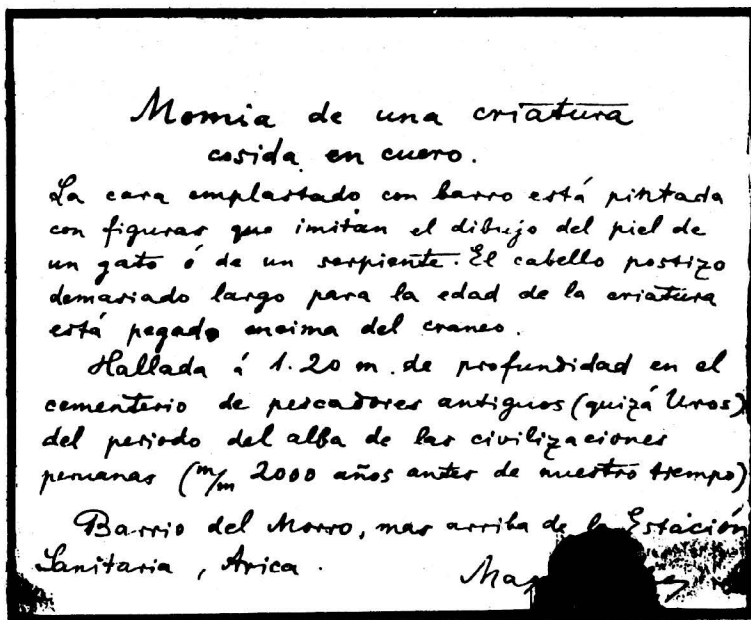 Momia de una criatura
cosida en cuero.
La cara emplastado con barro está pintada
con figuras que imitan el dibujo del piel de
un gato ó de un serpiente. El cabello postizo
demasiado largo para la edad de la criatura
está pegado encima del craneo.
Hallada á 1.20 m. de profundidad en el
cementerio de pescadores antiguos (quizá Uros)
del periodo del alba de las civilizaciones
peruanas (m/m 2000 años antes de nuestro tiempo)
Barrio del Morro, mas arriba de la Estación
Sanitaria, Arica.